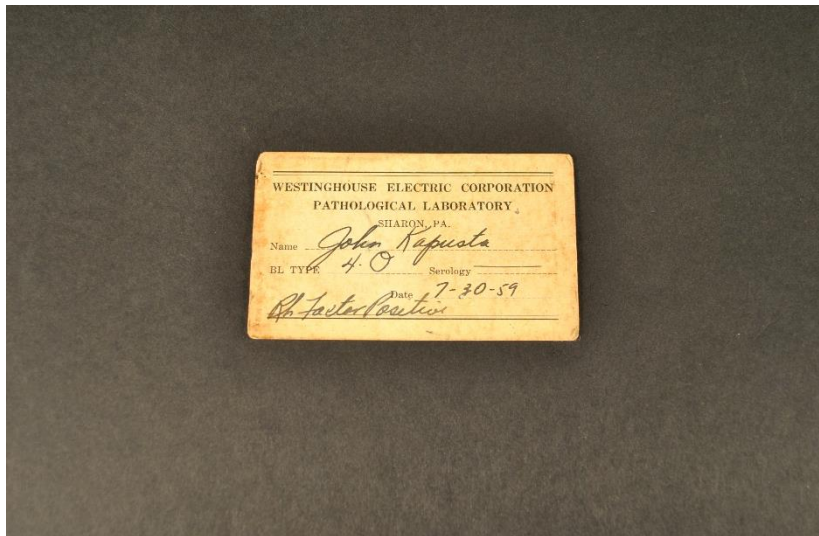 WESTINGHOUSE ELECTRIC CORPORATION
PATHOLOGICAL LABORATORY
SHARON, PA.
Name John Kapusta
BL TYPE 4-O Serology
Date 7-30-59
Rh Factor Positive